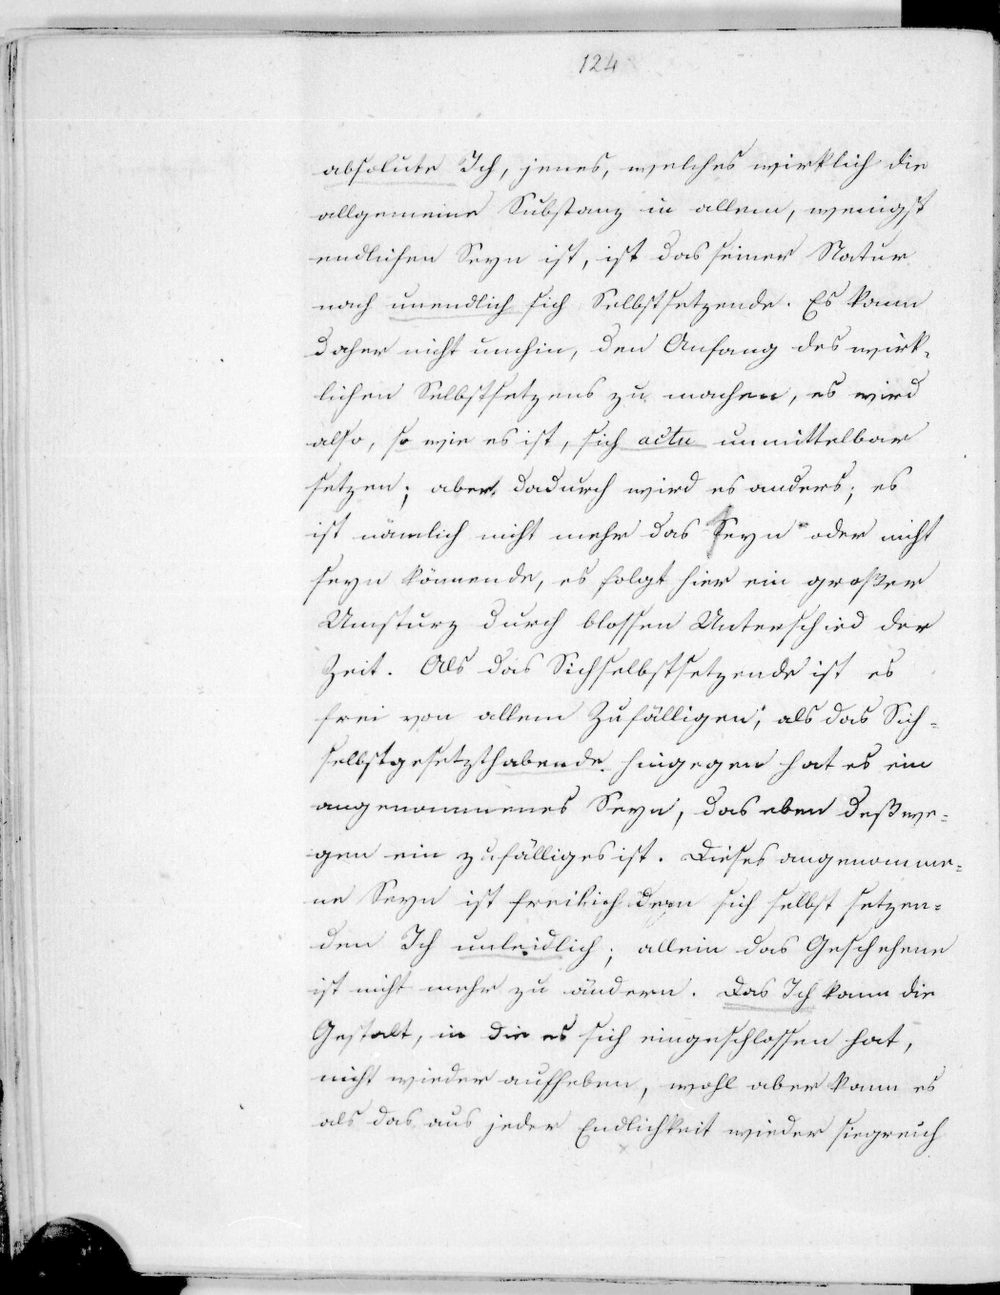 124
absolute Ich, jenes, welches wirklich die
allgemeine Substanz in allem, wenigst
endlichen Seyn ist, ist das seiner Natur
nach unendlich sich Selbstsetzende. Es kann
daher nicht umhin, den Anfang des wirk-
lichen Selbstsetzens zu machen, es wird
also, so wie es ist, sich actu unmittelbar
setzen; aber dadurch wird es anders; es
ist nämlich nicht mehr das Seyn oder nicht
seyn könnende, es folgt hier ein großer
Umsturz durch blossen Unterschied der
Zeit. Als das Sichselbstsetzende ist es
frei von allem Zufälligen; als das Sich-
selbstgesetzthabende hingegen hat es ein
angenommenes Seyn, das eben deßwe-
gen ein zufälliges ist. Dieses angenomme-
ne Seyn ist freilich dem sich selbst setzen-
den Ich unleidlich; allein das Geschehene
ist nicht mehr zu ändern. Das Ich kann die
Gestalt, in die es sich eingeschlossen hat,
nicht wieder aufheben, wohl aber kann es
als das aus jeder Endlichkeit wieder siegreich